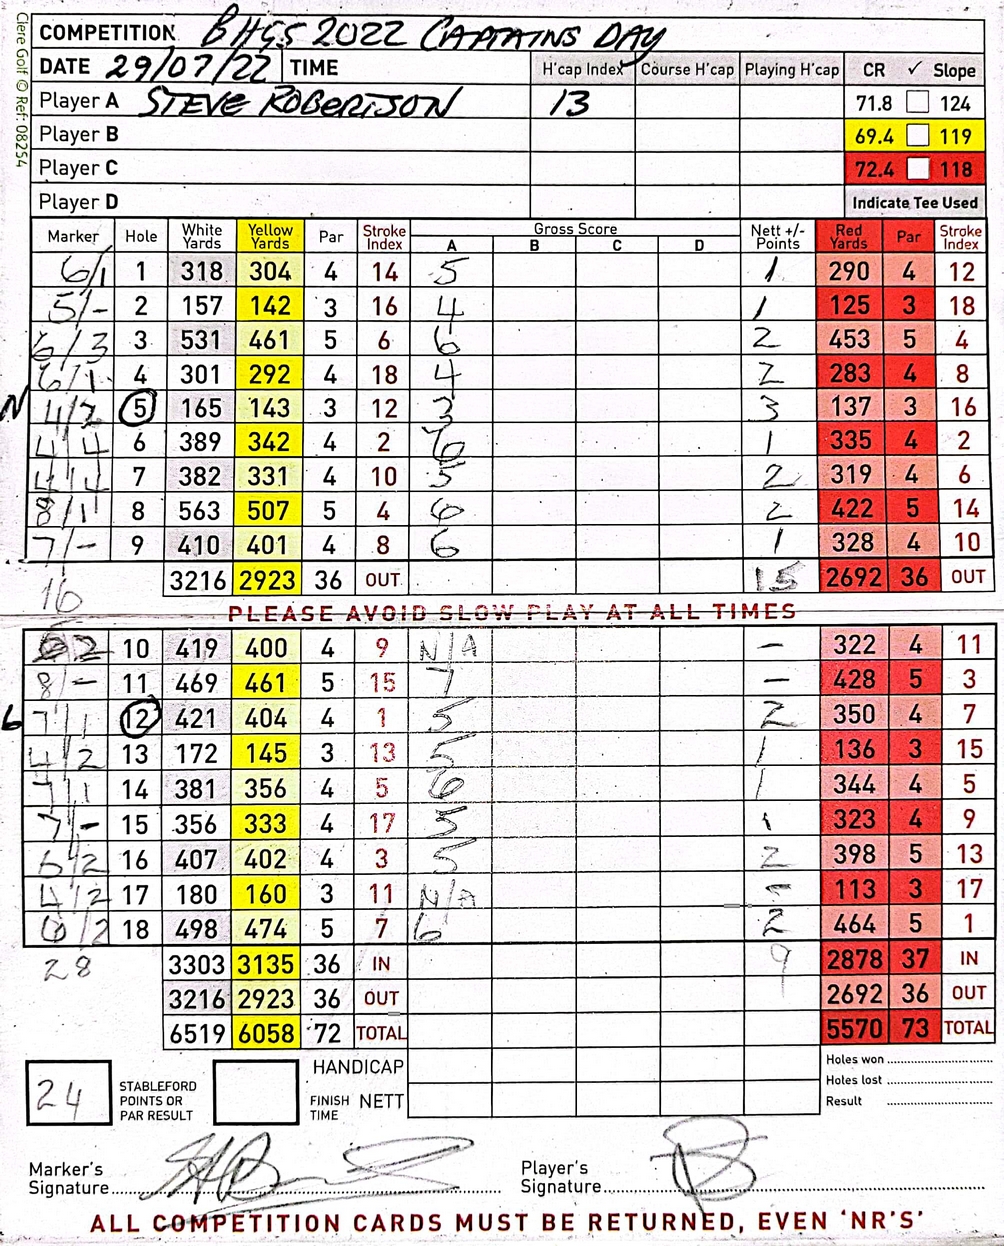 Clere Golf © Ref: 08254
COMPETITION BHGS 2022 CAPTAINS DAY
DATE 29/07/22 TIME H'cap Index Course H'cap Playing H'cap CR ✓ Slope
Player A STEVE ROBERTSON 13 71.8 124
Player B 69.4 119
Player C 72.4 118
Player D Indicate Tee Used
Marker Hole White Yards Yellow Yards Par Stroke Index Gross Score A B C D Nett +/- Points Red Yards Par Stroke Index
6/1 1 318 304 4 14 5 1 290 4 12
5/- 2 157 142 3 16 4 1 125 3 18
6/3 3 531 461 5 6 6 2 453 5 4
6/1 4 301 292 4 18 4 2 283 4 8
N 4/2 5 165 143 3 12 3 3 137 3 16
4/4 6 389 342 4 2 6 1 335 4 2
4/4 7 382 331 4 10 5 2 319 4 6
8/1 8 563 507 5 4 6 2 422 5 14
7/- 9 410 401 4 8 6 1 328 4 10
16 3216 2923 36 OUT 15 2692 36 OUT
PLEASE AVOID SLOW PLAY AT ALL TIMES
2 10 419 400 4 9 N/A - 322 4 11
8/- 11 469 461 5 15 7 - 428 5 3
L 7/1 12 421 404 4 1 5 2 350 4 7
4/2 13 172 145 3 13 5 1 136 3 15
7/1 14 381 356 4 5 6 1 344 4 5
7/- 15 356 333 4 17 5 1 323 4 9
6/2 16 407 402 4 3 5 2 398 5 13
4/2 17 180 160 3 11 N/A - 113 3 17
6/2 18 498 474 5 7 6 2 464 5 1
28 3303 3135 36 IN 9 2878 37 IN
3216 2923 36 OUT 2692 36 OUT
6519 6058 72 TOTAL 5570 73 TOTAL
24 STABLEFORD POINTS OR PAR RESULT HANDICAP
FINISH TIME NETT
Holes won
Holes lost
Result
Marker's Signature
Player's Signature
ALL COMPETITION CARDS MUST BE RETURNED, EVEN 'NR'S'